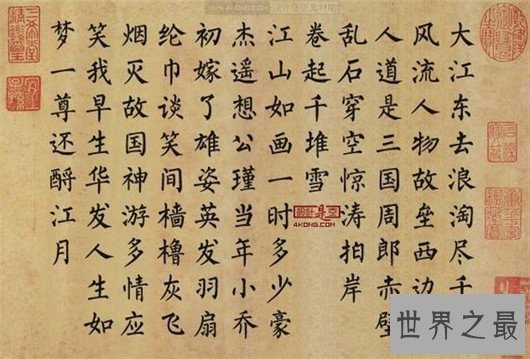 大江东去浪淘尽千
风流人物故垒西边
人道是三国周郎赤壁
乱石穿空惊涛拍岸
卷起千堆雪
江山如画一时多少豪
杰遥想公瑾当年小乔
初嫁了雄姿英发羽扇
纶巾谈笑间樯橹灰飞
烟灭故国神游多情应
笑我早生华发人生如
梦一尊还酹江月
4KONG.COM
世界之最